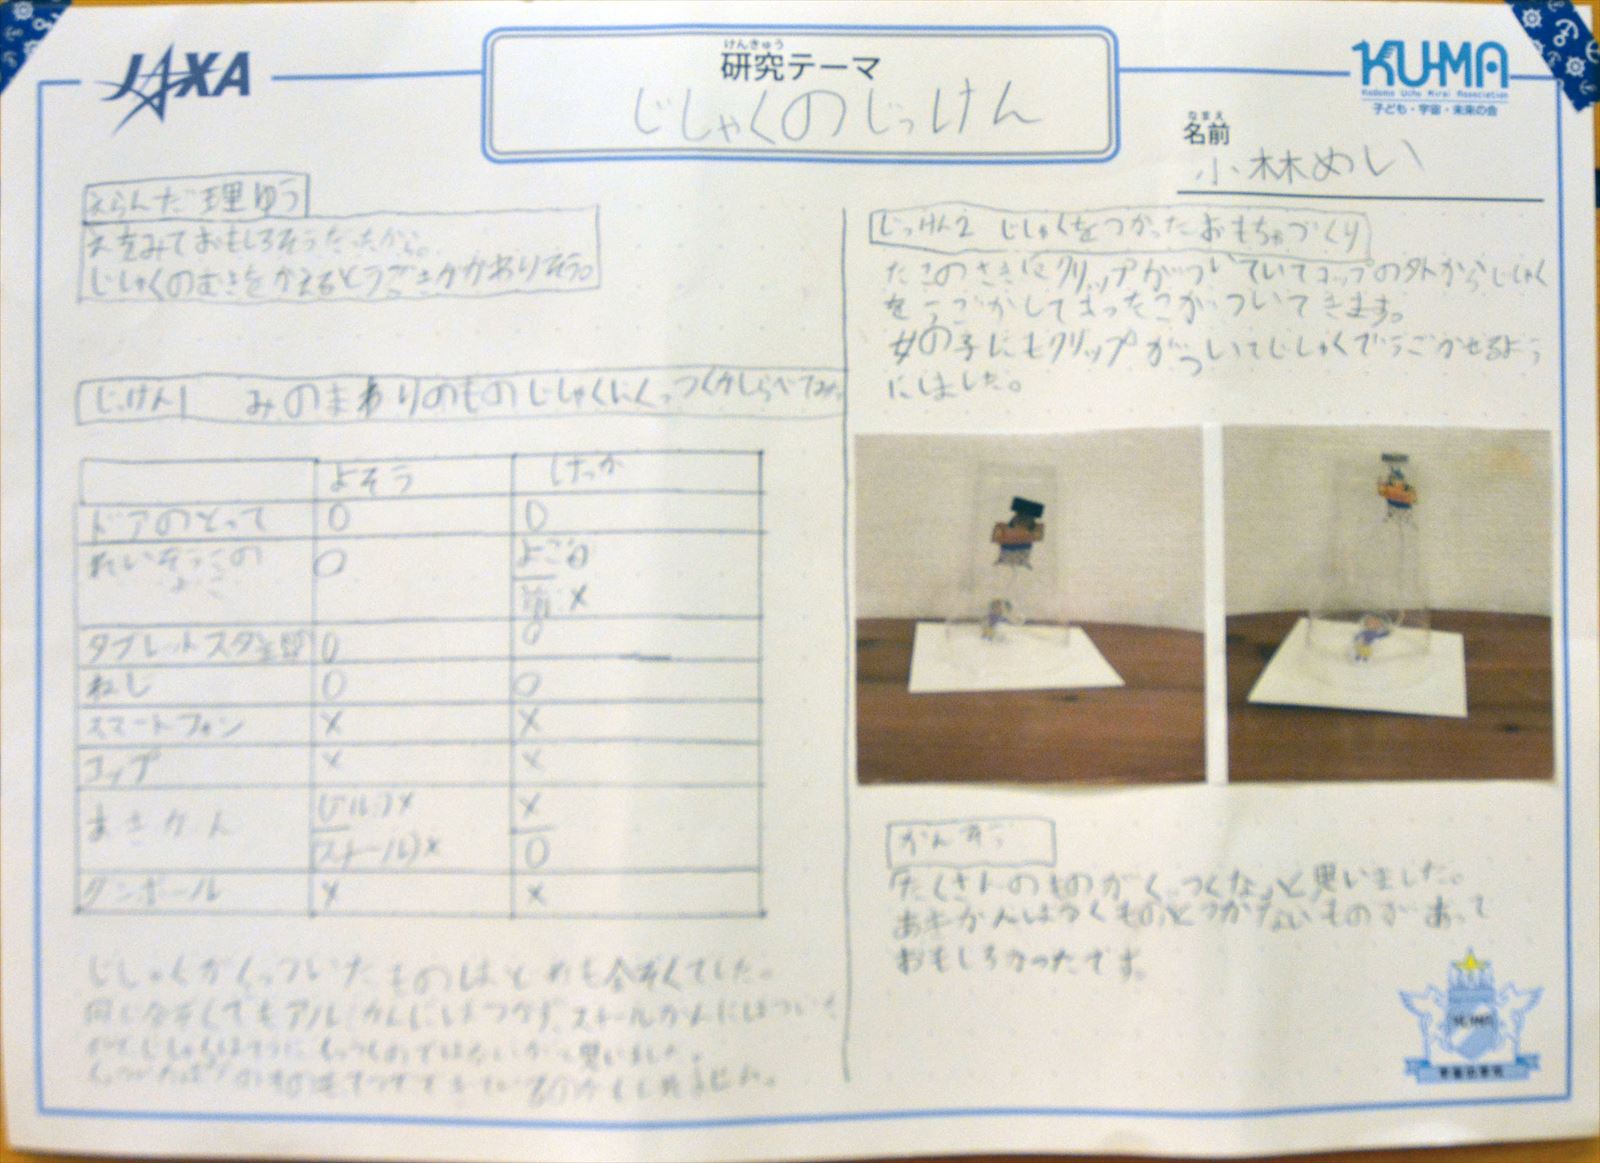 JAXA
けんきゅう
研究テーマ
じしゃくのじっけん
KU-MA
Kodomo Uchu Mirai Association
子ども・宇宙・未来の会
なまえ
名前
小林めい
えらんだ理ゆう
えをみておもしろそうだったから。
じしゃくのむきをかえるとうごきがかわりそう。
じっけん1 みのまわりのものじしゃくにくっつくかしらべてみた
よそう けっか
ドアのとって O O
O よこO
X
タブレットスタンド O O
ねじ O O
スマートフォン X X
コップ X X
あきかん (アルミ)X X
(スチール)X O
ダンボール X X
じしゃくがくっついたものはどれも金ぞくでした。
同じ金ぞくでもアルミかんにはつかず、スチールかんにはついた
と思いました。
じっけん2 じしゃくをつかったおもちゃづくり
たこのさきにクリップがついていてコップの外からじしゃく
をうごかしてまったこがついてきます。
女の子にもクリップがついてじしゃくでうごかせるよう
にしました。
かんそう
たくさんのものがくっつくなっと思いました。
あきかんはつくものとつかないものがあって
おもしろかったです。
KU-MA